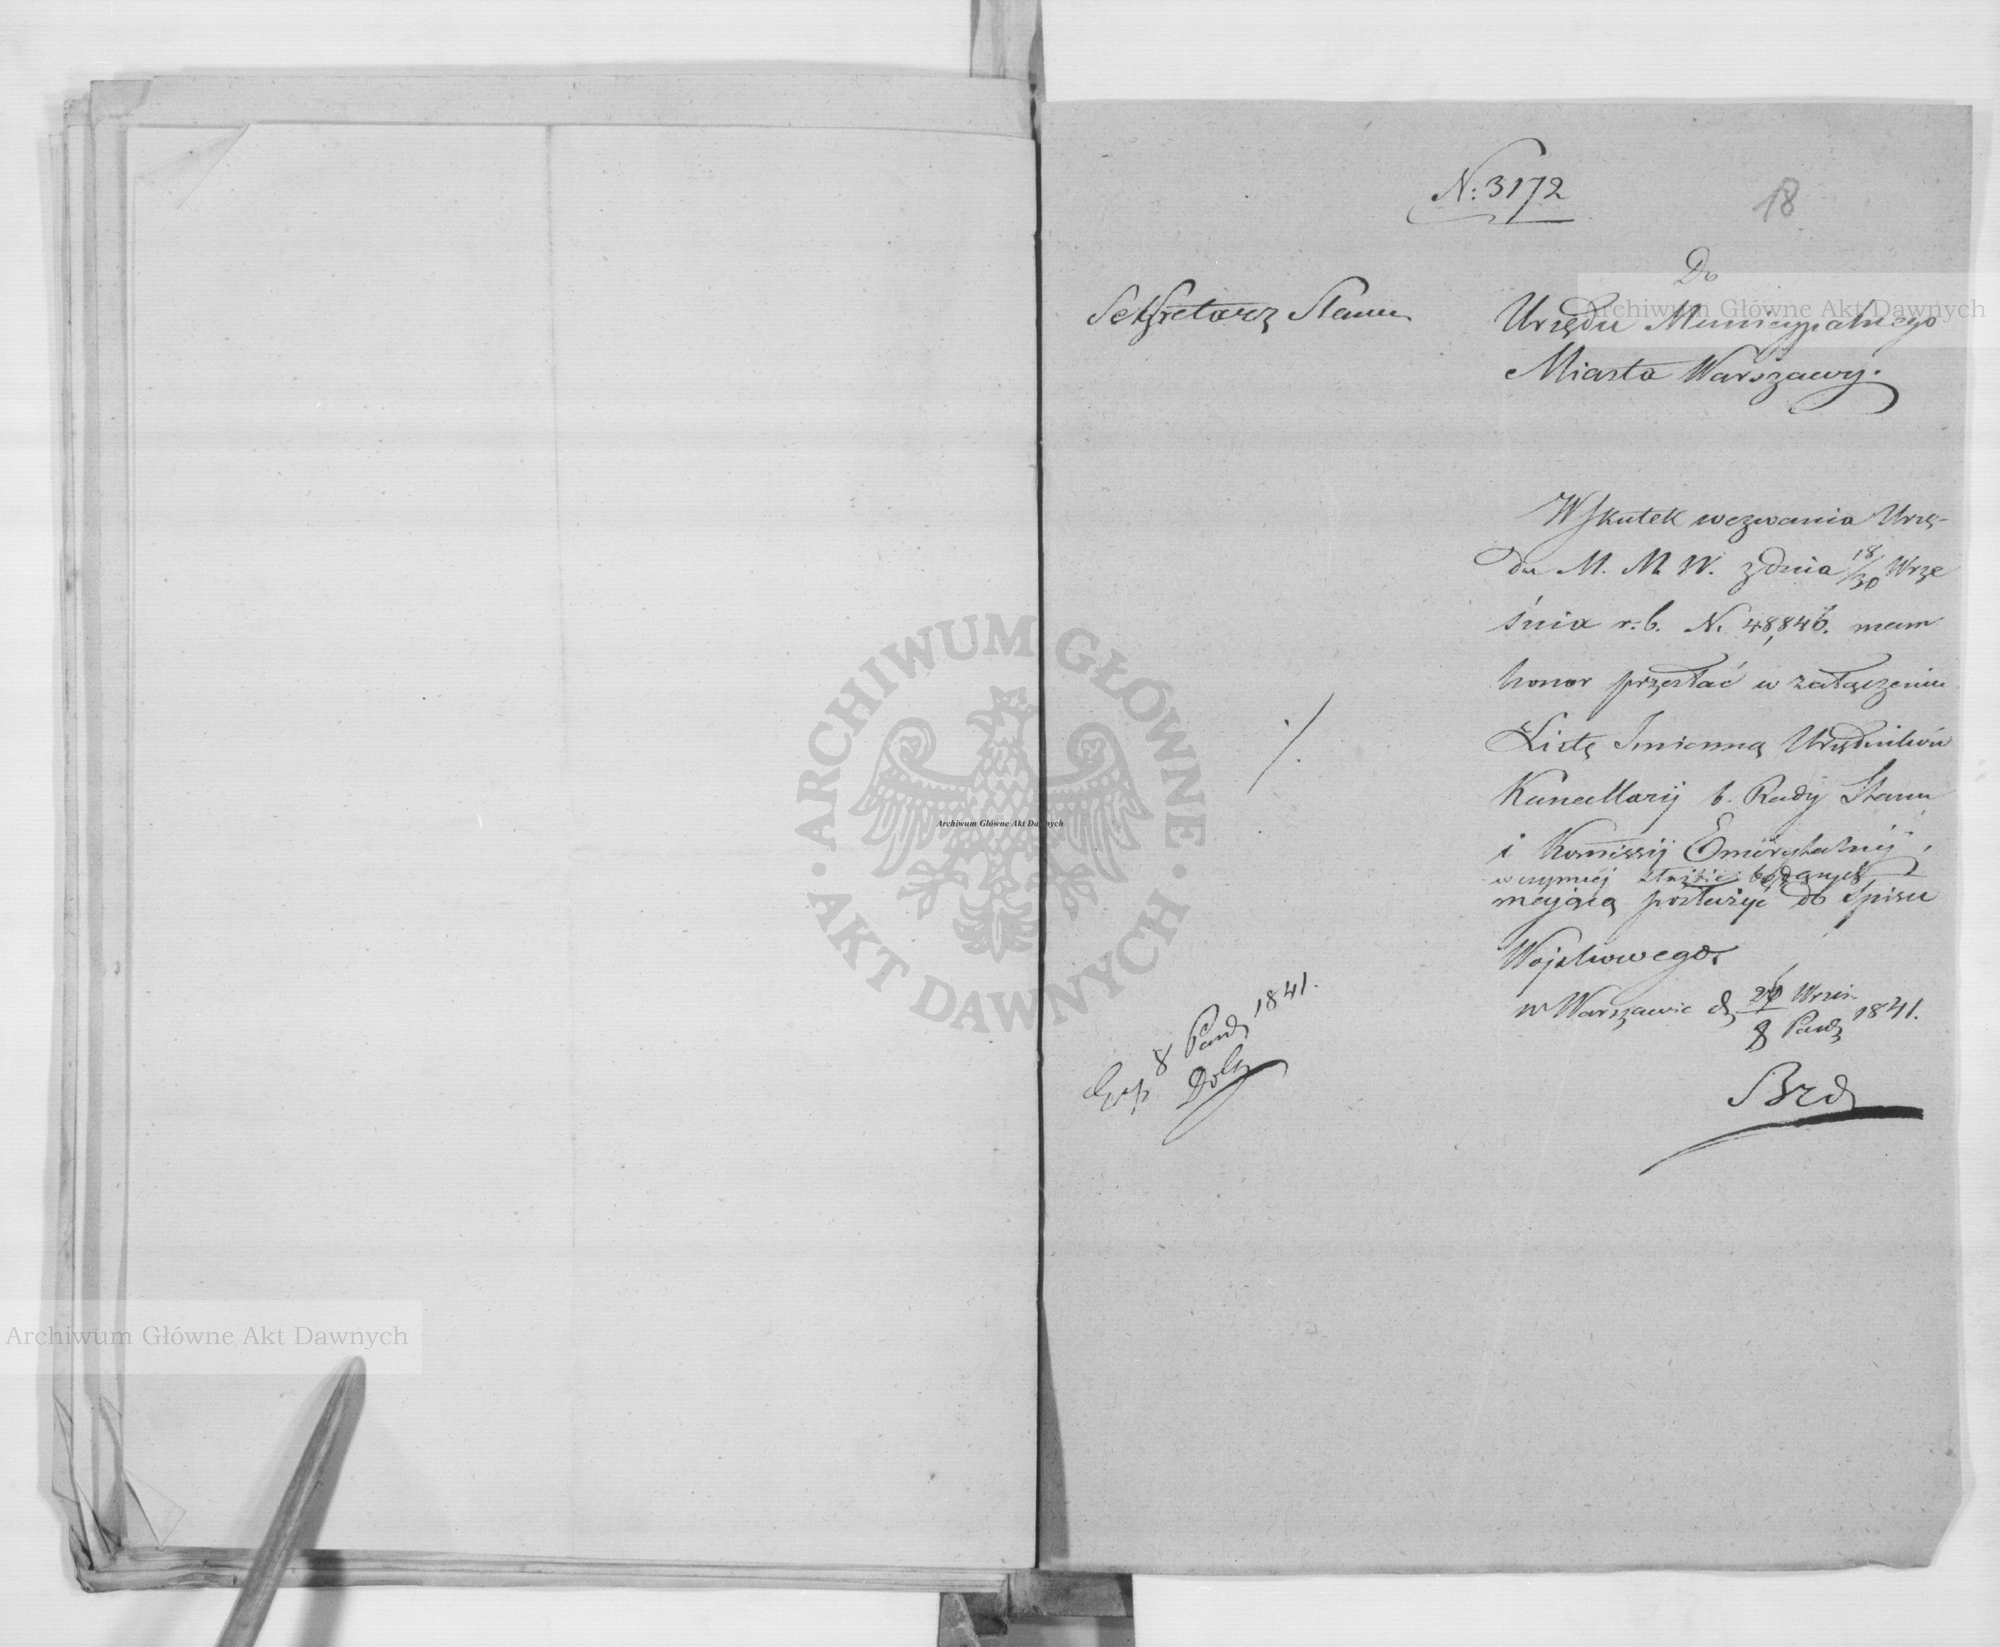 N: 3172
18
Sekretarz Stanu
Do
Urzędu Municypalnego
Miasta Warszawy.
Wskutek wezwania Urzę-
du M. M. W. z dnia 18/30 Wrze
śnia r. b. N. 48,846. mam
honor przesłać w załączeniu
Listę Imienną Urzędników
Kancellarij b. Rady Stanu
i Kommissij Emerytalnej,
w czynnej służbie będących
mającą posłużyć do Spisu
Wojskowego.
w Warszawie d. 26 Wrześ. / 8 Paźdz 1841.
Brd
Exp 8 Paźdz 1841.
Archiwum Główne Akt Dawnych
Archiwum Główne Akt Dawnych
Archiwum Główne Akt Dawnych
ARCHIWUM GŁÓWNE · AKT DAWNYCH ·